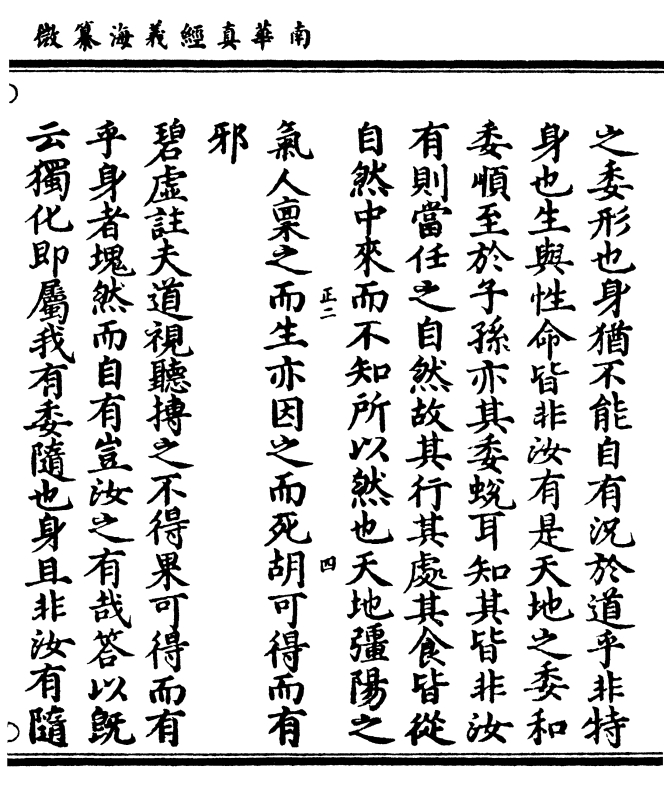 南華真經義海纂微
之委形也身猶不能自有況於道乎非特
身也生與性命皆非汝有是天地之委和
委順至於子孫亦其委蛻耳知其皆非汝
有則當任之自然故其行其處其食皆從
自然中來而不知所以然也天地彊陽之
氣人稟之而生亦因之而死胡可得而有
正二
四
邪
碧虛註夫道視聽摶之不得果可得而有
乎身者塊然而自有豈汝之有哉答以既
云獨化即屬我有委隨也身且非汝有隨